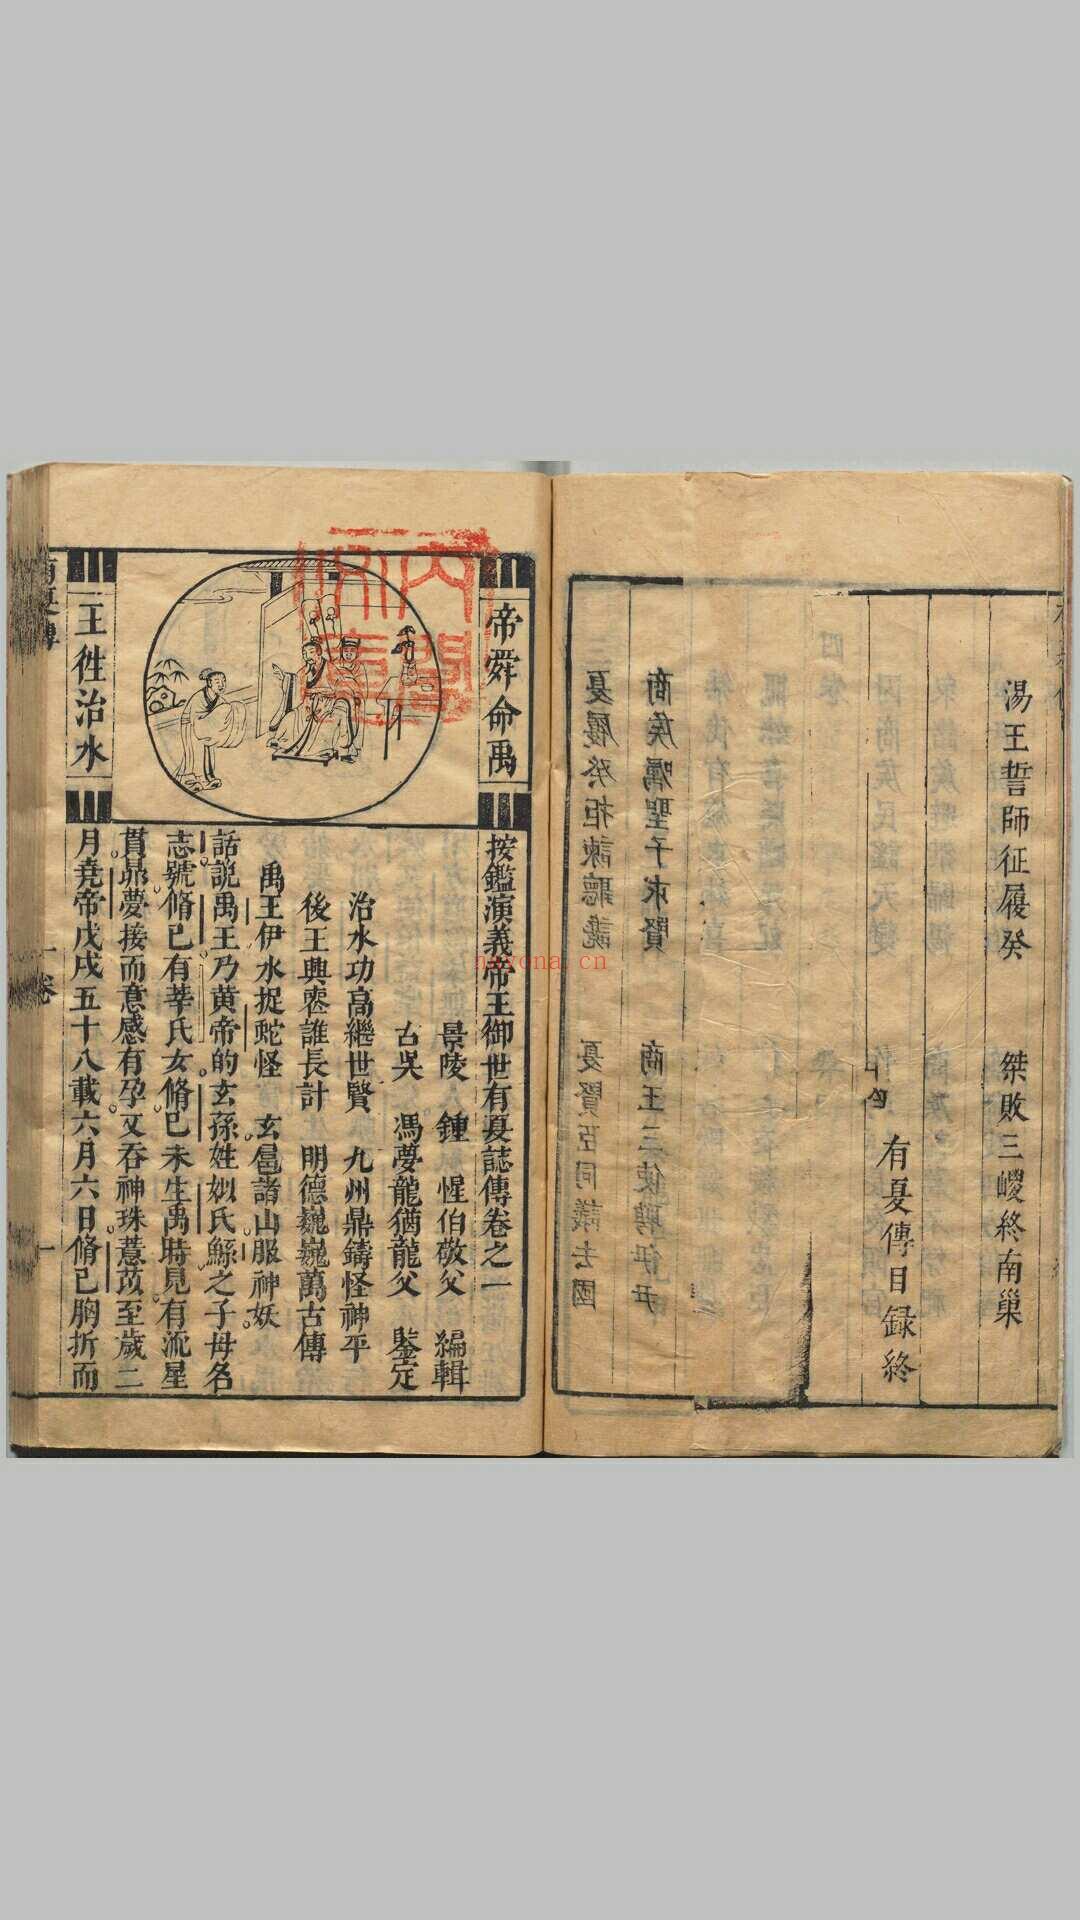 湯王誓師征履癸　桀敗三㚇終南巢
有夏傳目録終
帝舜命禹
王徃治水
按鑑演義帝王御世有夏誌傳卷之一
景陵　鍾　惺伯敬父　編輯
古吳　馮夢龍猶龍父　鑒定
治水功高繼世賢　九州鼎鑄怪神平
後王興喪誰長計　明德巍巍萬古傳
禹王伊水捉蛇怪　玄扈諸山服神妖
話說禹王乃黄帝的玄孫姓姒氏鯀之子母名
志號脩已有莘氏女脩已未生禹時見有流星
貫昴夢接而意感有孕又吞神珠薏苡至歲二
月堯帝戊戌五十八載六月六日脩已胸折而
一卷
一
nayona.cn